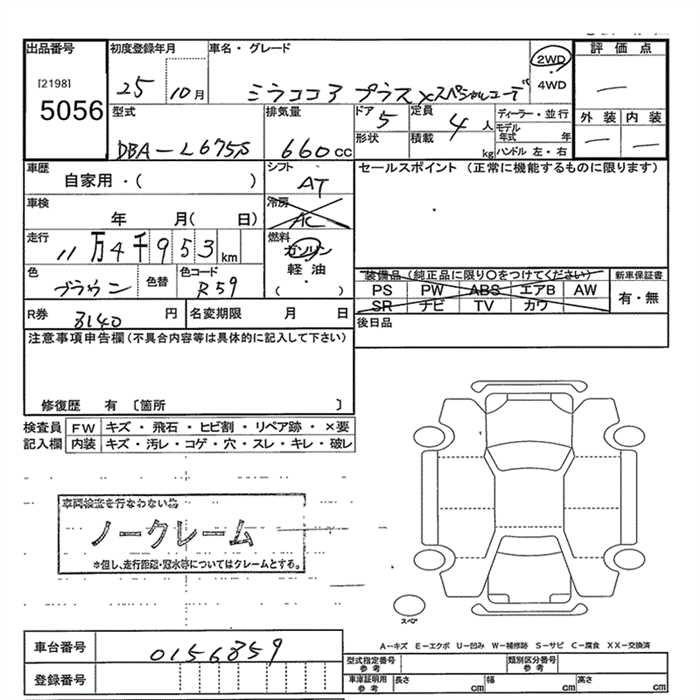 出品番号 初度登録年月 車名・グレード 評価点
[2198] 25 10月 ミラココア プラスXスペシャルコーデ 2WD ・ 4WD —
5056 外装 内装
型式 排気量 ドア 5 定員 4人 ディーラー・並行
形状 積載 kg モデル年式 年
DBA-L675S 660cc ハンドル 左・右 — —
車歴 シフト セールスポイント (正常に機能するものに限ります)
自家用・( ) AT
車検 冷房
年 月( 日) AC
走行 燃料
11万4千953km ガソリン
色 色替 色コード 軽油 装備品 (純正品に限り〇をつけてください) 新車保証書
ブラウン R59 ( ) PS PW ABS エアB AW 有・無
SR ナビ TV カワ
R券 8140円 名変期限 月 日 後日品
注意事項申告欄 (不具合内容等は具体的に記入して下さい)
修復歴 有 〔箇所 〕
検査員 FW キズ・飛石・ヒビ割・リペア跡・×要
記入欄 内装 キズ・汚レ・コゲ・穴・スレ・キレ・破レ
車両検査を行なわない為
ノークレーム
※但し、走行距離・冠水等についてはクレームとする。
スペア
A-キズ E-エクボ U-凹み W-補修跡 S-サビ C-腐食 XX-交換済
車台番号 0156859
登録番号
型式指定番号 参考 類別区分番号 参考
車庫証明用 参考 長さ cm 幅 cm 高さ cm